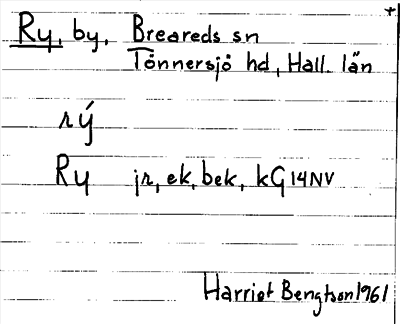 Ry, by, Breareds sn
Tönnersjö hd, Hall. län
rý
Ry jr, ek, bek, kG14NV
Harriet Bengtson 1961